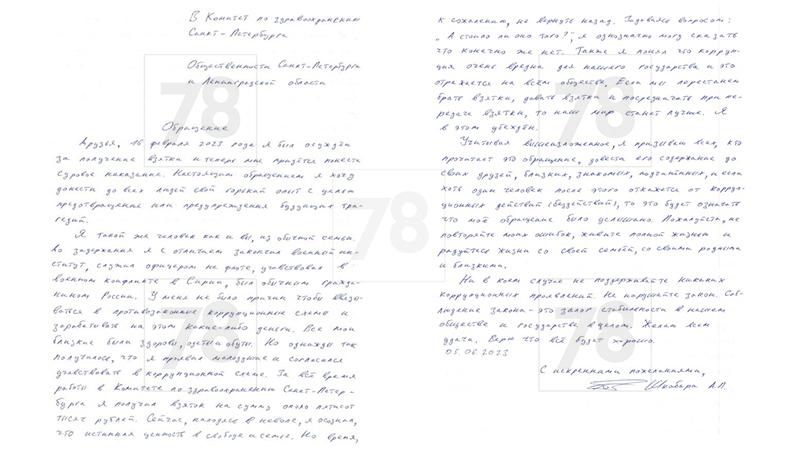 В Комитет по здравоохранению
Санкт-Петербурга
Общественности Санкт-Петербурга
и Ленинградской области
Обращение
Друзья, 16 февраля 2023 года я был осуждён
за получение взятки и теперь мне придётся понести
суровое наказание. Настоящим обращением я хочу
донести до всех людей свой горький опыт с целью
предотвращения или предупреждения будущих тра-
гедий.
Я такой же человек как и вы, из обычной семьи.
До задержания я с отличием закончил военный ин-
ститут, служил офицером на флоте, участвовал в
военном конфликте в Сирии, был обычным гражда-
нином России. У меня не было причин чтобы ввязы-
ваться в противозаконные коррупционные схемы и
зарабатывать на этом какие-либо деньги. Все мои
близкие были здоровы, одеты и обуты. Но однажды так
получилось, что я проявил малодушие и согласился
участвовать в коррупционной схеме. За всё время
работы в Комитете по здравоохранению Санкт-Петер-
бурга я получил взяток на сумму около пятисот
тысяч рублей. Сейчас, находясь в неволе, я осознал,
что истинная ценность в свободе и семье. Но время,
к сожалению, не вернуть назад. Задаваясь вопросом:
"А стоило ли оно того?", я однозначно могу сказать
что конечно же нет. Также я понял что корруп-
ция очень вредна для нашего государства и это
отражается на всём обществе. Если мы перестанем
брать взятки, давать взятки и посредничать при пе-
редаче взятки, то наш мир станет лучше. Я
в этом убеждён.
Учитывая вышеизложенное, я призываю всех, кто
прочитает это обращение, довести его содержание до
своих друзей, близких, знакомых, подчинённых, и если
хоть один человек после этого откажется от корруп-
ционных действий (бездействий), то это будет означать
что моё обращение было услышано. Пожалуйста, не
повторяйте моих ошибок, живите полной жизнью и
радуйтесь жизни со своей семьёй, со своими родными
и близкими.
Ни в коем случае не поддерживайте никаких
коррупционных проявлений. Не нарушайте закон. Соб-
людение закона - это залог стабильности в нашем
обществе и государстве в целом. Желаю всем
удачи. Верю что всё будет хорошо.
05.06.2023
С искренними пожеланиями,
Швабара А.П.
78
78
78
78
78